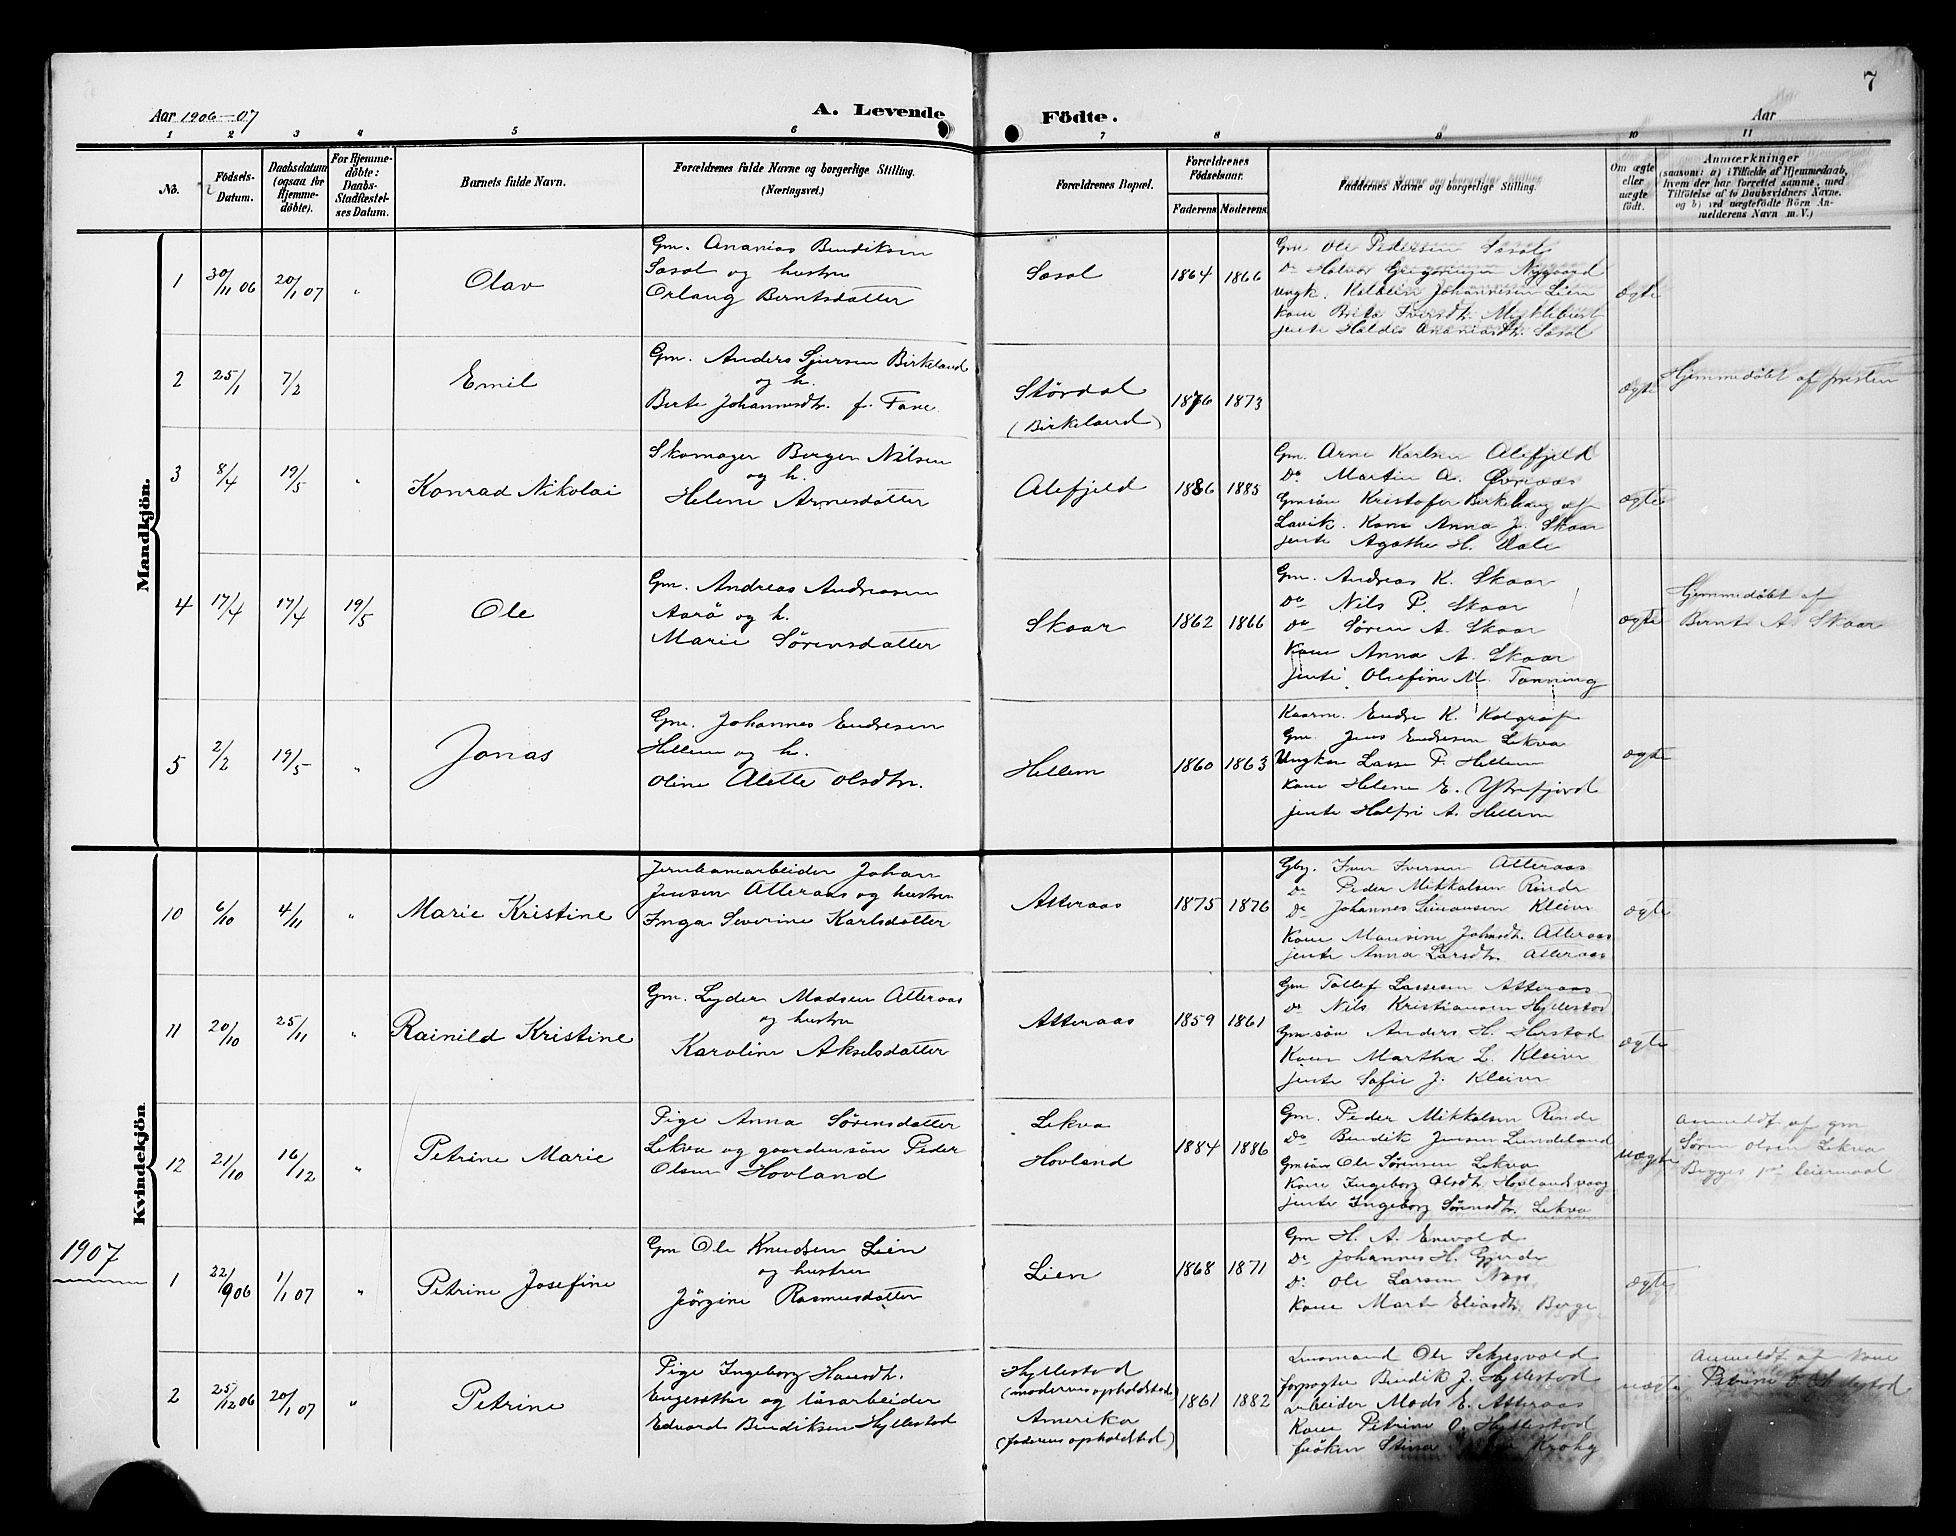 7
Aar 1906-07
A. Levende
Födte.
Aar
1 2 3 4 5 6 7 8 9 10 11
No.
Födsels-
Datum.
Daabsdatum
(ogsaa for
Hjemme-
döbte).
For Hjemme-
döbte:
Daabs-
Stadfæstel-
ses Datum.
Barnets fulde Navn.
Forældrenes fulde Navne og borgerlige Stilling.
(Næringsvei.)
Forældrenes Bopæl.
Forældrenes
Födselsaar.
Faderens. Moderens.
Faddernes Navne og borgerlige Stilling.
Om ægte
eller
uægte
födt.
Anmærkninger
(saasom: a) i Tilfælde af Hjemmedaab,
hvem der har forrettet samme, med
Tilföielse af to Daabsvidners Navne,
og b) ved uægtefödte Börn An-
melderens Navn m. V.)
Mandkjön.
1 30/11 06 20/1 07 " Olav
Gm. Ananias Bendiksen
Sæsol og hustru
Orlaug Berntsdatter
Sæsol 1864 1866
Gm Ole Pedersen Sæsol
Do Halvor Gregoriusen Nygaard
Ungk. Kolbein Johannesen Lien
Kone Brita Iversdtr. Myklebust
jente Haldis Ananiasdtr. Sæsol
ægte
2 25/1 7/2 Emil
Gm. Anders Sjursen Birkeland
og h.
Berte Johannesdtr. f. Fane.
Stördal
(Birkeland)
1876 1873
ægte
Hjemmedöbt af presten
3 8/4 19/5 " Konrad Nikolai
Skomager Berger Nilsen
og h.
Helene Arnesdatter
Alefjeld 1886 1885
Gm. Arne Karlsen Alefjeld
Do Martin A. Övreaas
Gmsön Kristofer Birkehaug af
Lavik. Kone Anna J. Skaar
jente Agathe H. Dale
ægte
4 17/4 17/4 19/5 Ole
Gm. Andreas Andreasen
Aarö og h.
Marie Sörensdatter
Skaar 1862 1866
Gm. Andreas K. Skaar
Do Nils P. Skaar
Do Sören A. Skaar
Kone Anna A. Skaar
jente Olefine M. Tanning
ægte
Hjemmedöbt af
Bernt A. Skaar
5 2/2 19/5 " Jonas
Gm. Johannes Endresen
Hellem og h.
Oline Alette Olsdtr.
Hellem 1860 1863
Kaarm. Endre K. Kolgrof
Gm. Jens Endresen Lekva
Ungkar Lasse P. Hellem
Kone Helene E. Ytrefjord
jente Halfri A. Hellem
ægte
Kvindekjön
10 6/10 4/11 " Marie Kristine
Jernbanearbeider Johan
Jensen Atteraas og hustru
Inga Severine Karlsdatter
Atteraas 1875 1876
Gbr. Iver Iversen Atteraas
Do Peder Mikkalsen Rinde
Do Johannes Simonsen Kleiva
Kone Mansine Johnsdtr. Atteraas
jente Anna Larsdtr. Atteraas
ægte
11 20/10 25/11 " Rainild Kristine
Gm. Lyder Madsen Atteraas
og hustru
Karoline Akselsdatter
Atteraas 1859 1861
Gm Tollef Lassesen Atteraas
Do Nils Kristiansen Hyllestad
Gmsön Anders H. Herstad
Kone Martha L. Kleiva
jente Sofie J. Kleiva
ægte
12 21/10 16/12 " Petrine Marie
Pige Anna Sörensdatter
Lekva og gaardmsön Peder
Olsen Hovland
Lekva
Hovland
1884 1886
Gm. Peder Mikkalsen Rinde
Do Bendik Jensen Lundeland
Gmsön Ole Sörensen Lekva
Kone Ingeborg Olsdtr. Hovlandsvaag
jente Ingeborg Sörensdtr. Lekva
uægte
Anmeldt af gm
Sören Olsen Lekva
Begges 1ste leiermaal
1907
1 22/9 06 1/1 07 " Petrine Josefine
Gm Ole Knudsen Lien
og hustru
Jörgine Rasmusdatter
Lien 1868 1871
Gm H. A. Enevold
Do Johannes H. Gjerde
Do Ole Larsen Næs
Kone Marte Eliasdtr. Berge
ægte
2 25/12 06 20/1 07 " Petrine
Pige Ingeborg Hansdtr.
og lösarbeider
Edvard Bendiksen Hyllestad
Hyllestad
(moderens opholdsted)
Amerika
(faderens opholdsted)
1861 1882
Lensmand Ole Schjesvold
forpagter Bendik J. Hyllestad
Arbeider Mads E. Atteraas
Kone Petrine O. Hyllestad
fröken Stina Krohg
uægte
Anmeldt af kone
Petrine O. Hyllestad